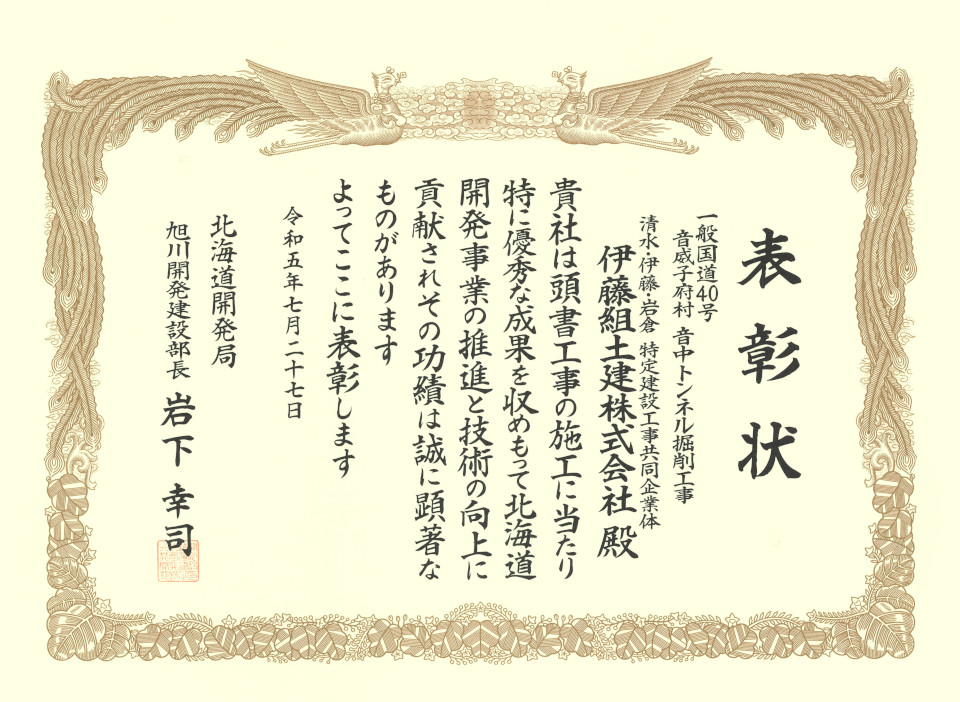 表彰状
一般国道40号
音威子府村 音中トンネル掘削工事
清水・伊藤・岩倉 特定建設工事共同企業体
伊藤組土建株式会社 殿
貴社は頭書工事の施工に当たり
特に優秀な成果を収めもって北海道
開発事業の推進と技術の向上に
貢献されその功績は誠に顕著な
ものがあります
よってここに表彰します
令和五年七月二十七日
北海道開発局
旭川開発建設部長 岩下 幸司